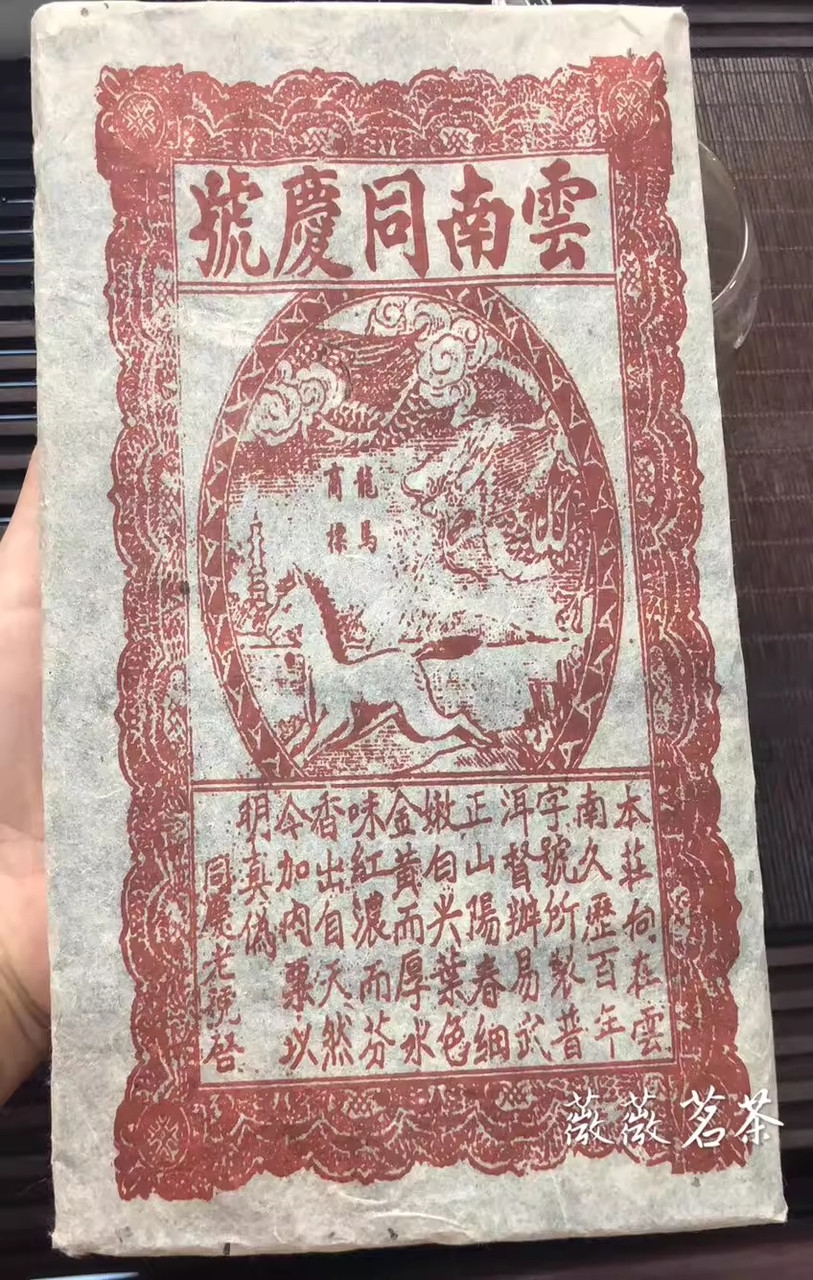 雲南同慶號
龍馬
商標
本莊向在雲
南久歷百年
字號所製普
洱督辦易武
正山陽春細
嫩白尖葉色
金黃而厚水
味紅濃而芬
香出自天然
今加內票以
明真偽
同慶老號啓
薇薇茗茶